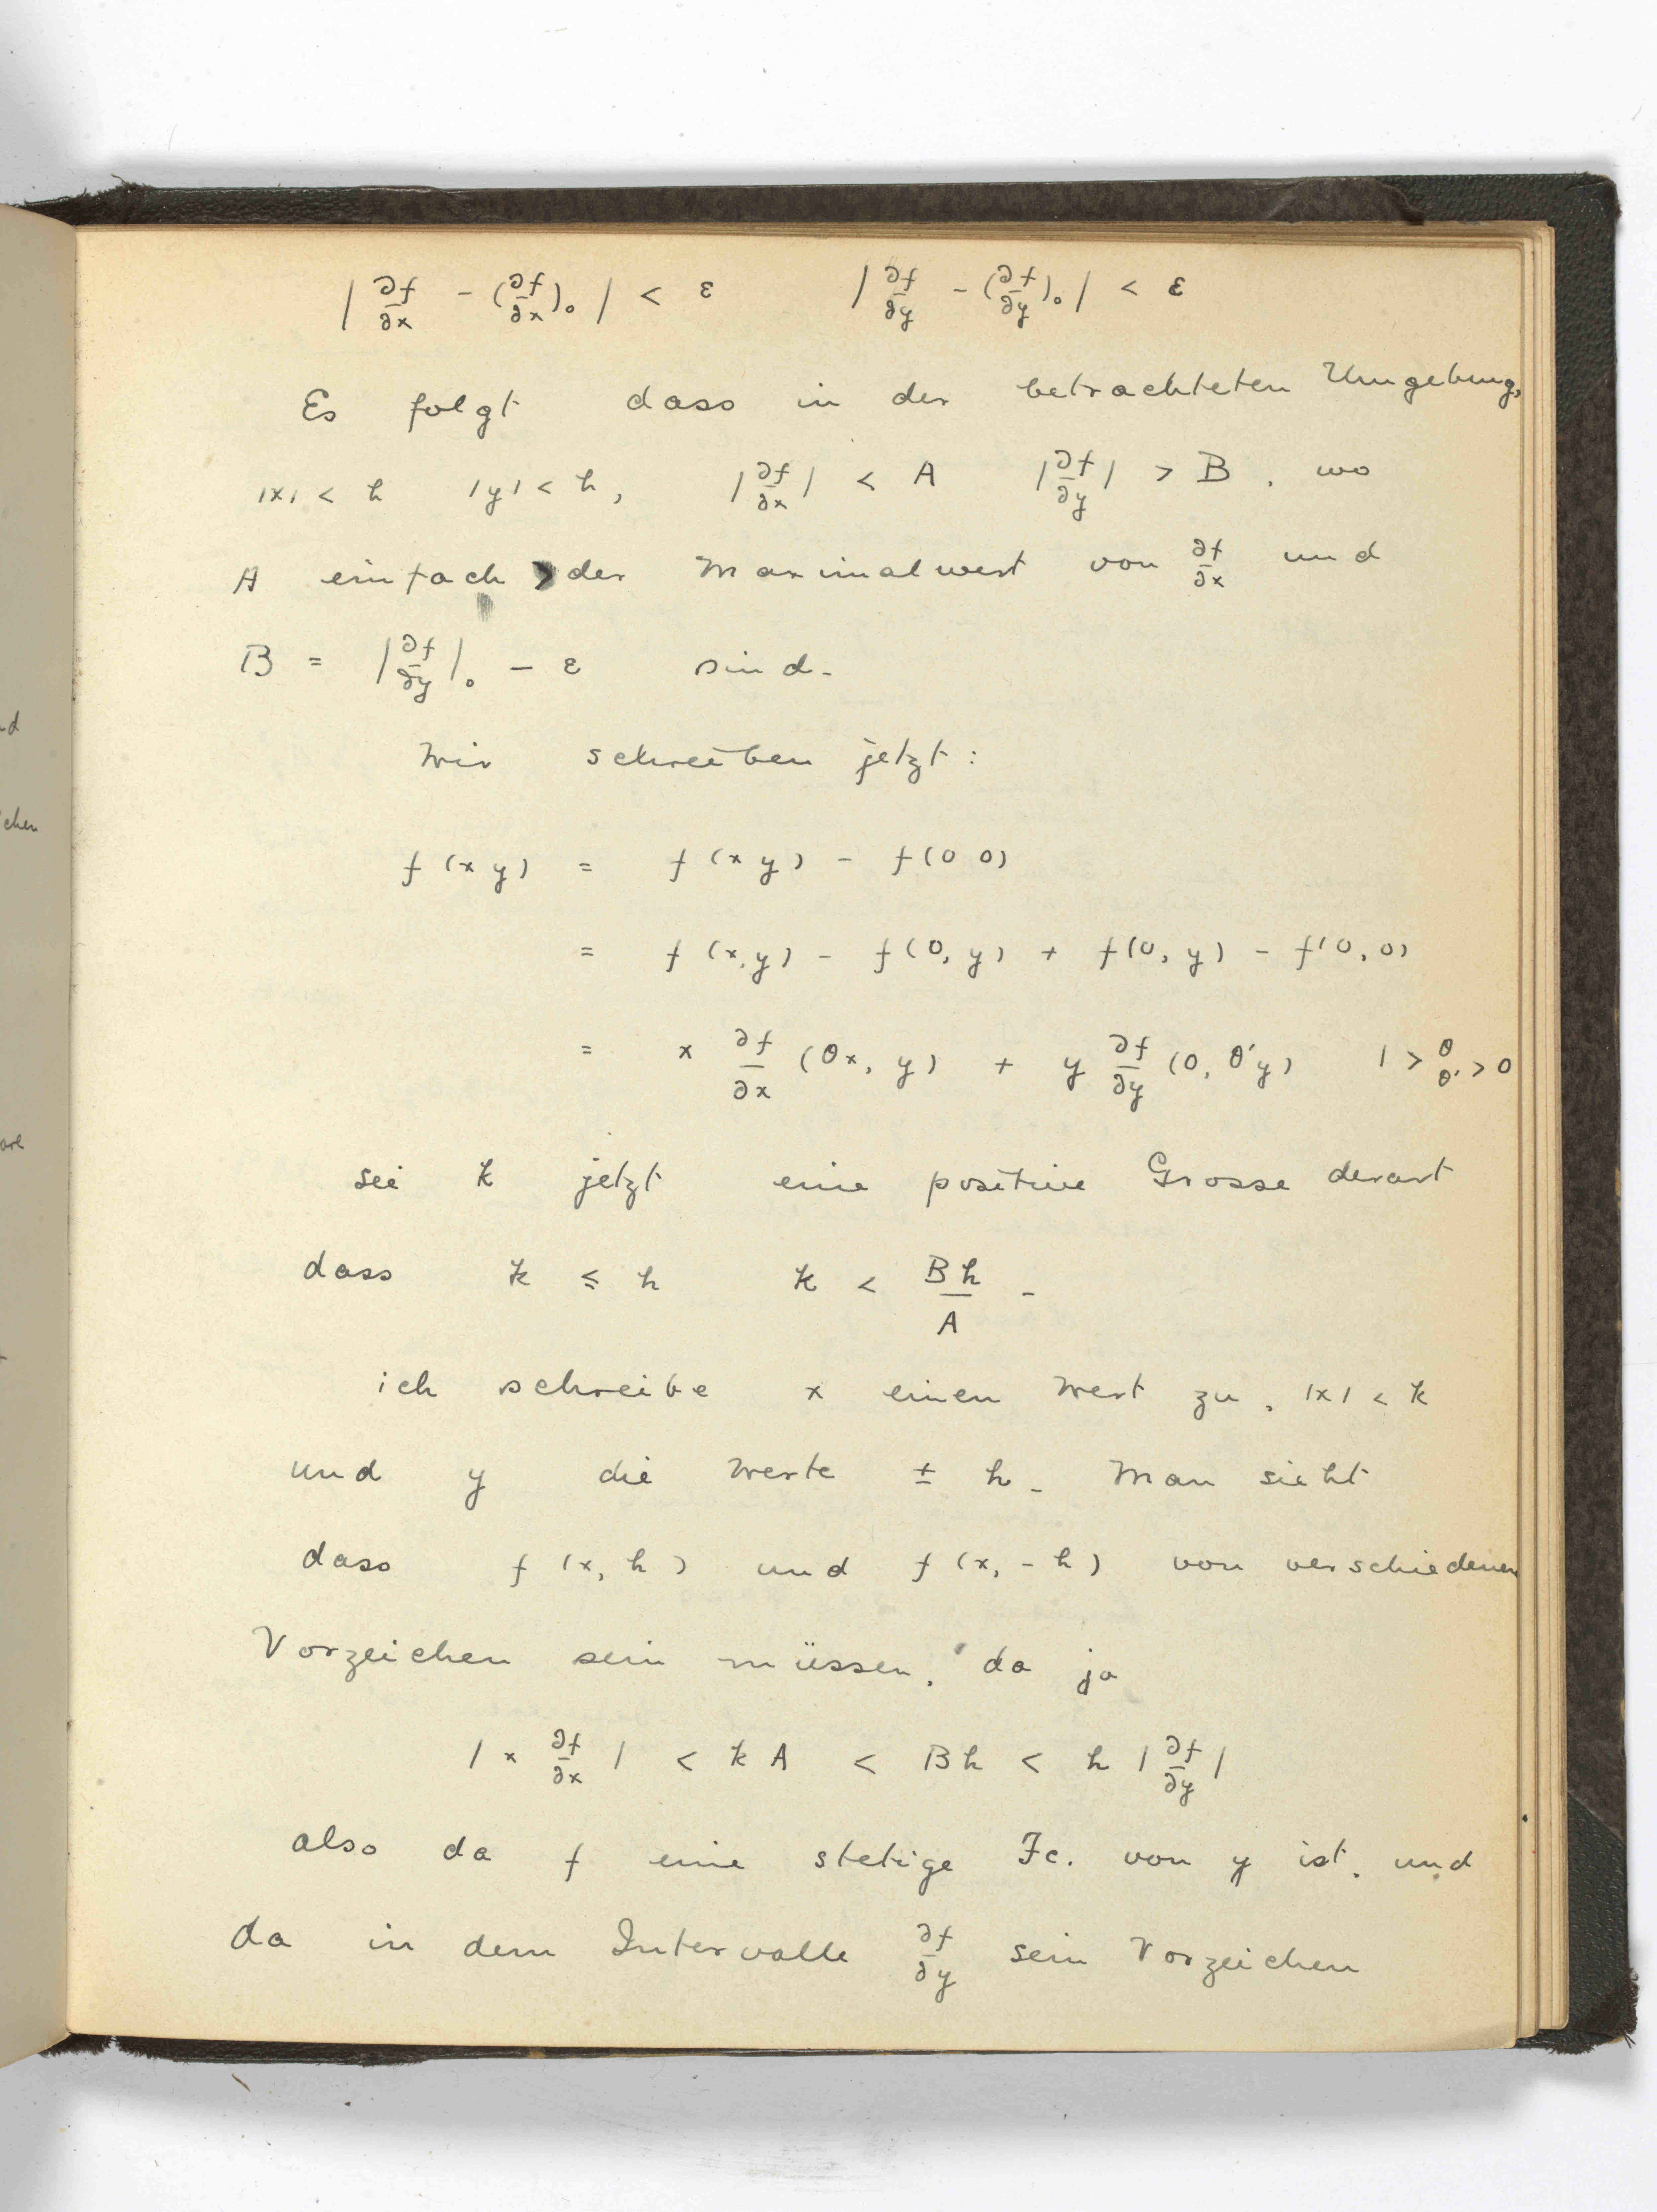 | ∂f/∂x - (∂f/∂x)₀ | < ε    | ∂f/∂y - (∂f/∂y)₀ | < ε
Es folgt dass in der betrachteten Umgebung,
|x| < h   |y| < h,   |∂f/∂x| < A   |∂f/∂y| > B, wo
A einfach der Maximalwert von ∂f/∂x und
B = |∂f/∂y|₀ - ε   sind.
Wir schreiben jetzt:
f (x y) = f (x y) - f (0 0)
= f (x, y) - f (0, y) + f (0, y) - f (0, 0)
= x ∂f/∂x (θx, y) + y ∂f/∂y (0, θ'y)   1 > θ θ' > 0
sei k jetzt eine positive Grosse derart
dass k ≤ h   k < Bh/A -
ich schreibe x einen Wert zu, |x| < k
und y die Werte ± h - Man sieht
dass f (x, h) und f (x, - h) von verschiedenen
Vorzeichen sein müssen, da ja
| x ∂f/∂x | < k A < Bh < h | ∂f/∂y |
also da f eine stetige Fc. von y ist, und
da in dem Intervalle ∂f/∂y sein Vorzeichen